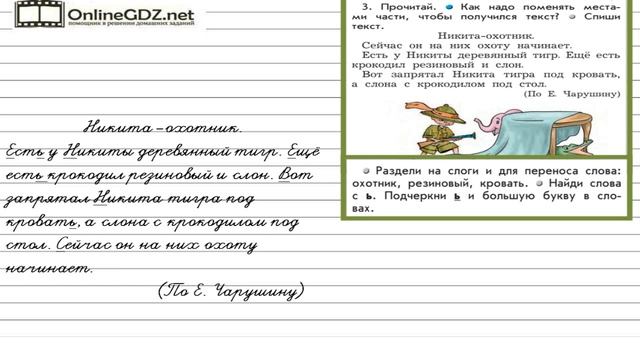 OnlineGDZ.net
помощник в решении домашних заданий
Никита – охотник.
Есть у Никиты деревянный тигр. Ещё
есть крокодил резиновый и слон. Вот
запрятал Никита тигра под
кровать, а слона с крокодилом под
стол. Сейчас он на них охоту
начинает.
(По Е. Чарушину)
3. Прочитай. Как надо поменять места-
ми части, чтобы получился текст? Спиши
текст.
Никита-охотник.
Сейчас он на них охоту начинает.
Есть у Никиты деревянный тигр. Ещё есть
крокодил резиновый и слон.
Вот запрятал Никита тигра под кровать,
а слона с крокодилом под стол.
(По Е. Чарушину)
Раздели на слоги и для переноса слова:
охотник, резиновый, кровать. Найди слова
с ь. Подчеркни ь и большую букву в сло-
вах.